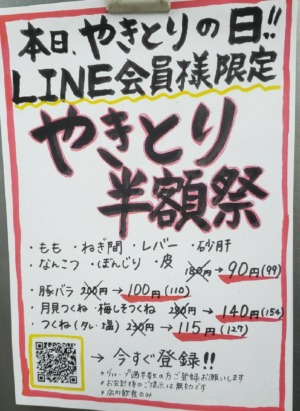 本日、やきとりの日!!
LINE会員様限定
やきとり
半額祭
・もも・ねぎ間・レバー・砂肝
・なんこつ・ぼんじり・皮
180円→90円(99)
・豚バラ 200円→100円(110)
・月見つくね・梅しそつくね 280円→140円(154)
つくね(タレ・塩) 230円→115円(127)
→今すぐ登録!!
*グループ
*お会計後のご提示は無効です
*店内飲食のみ